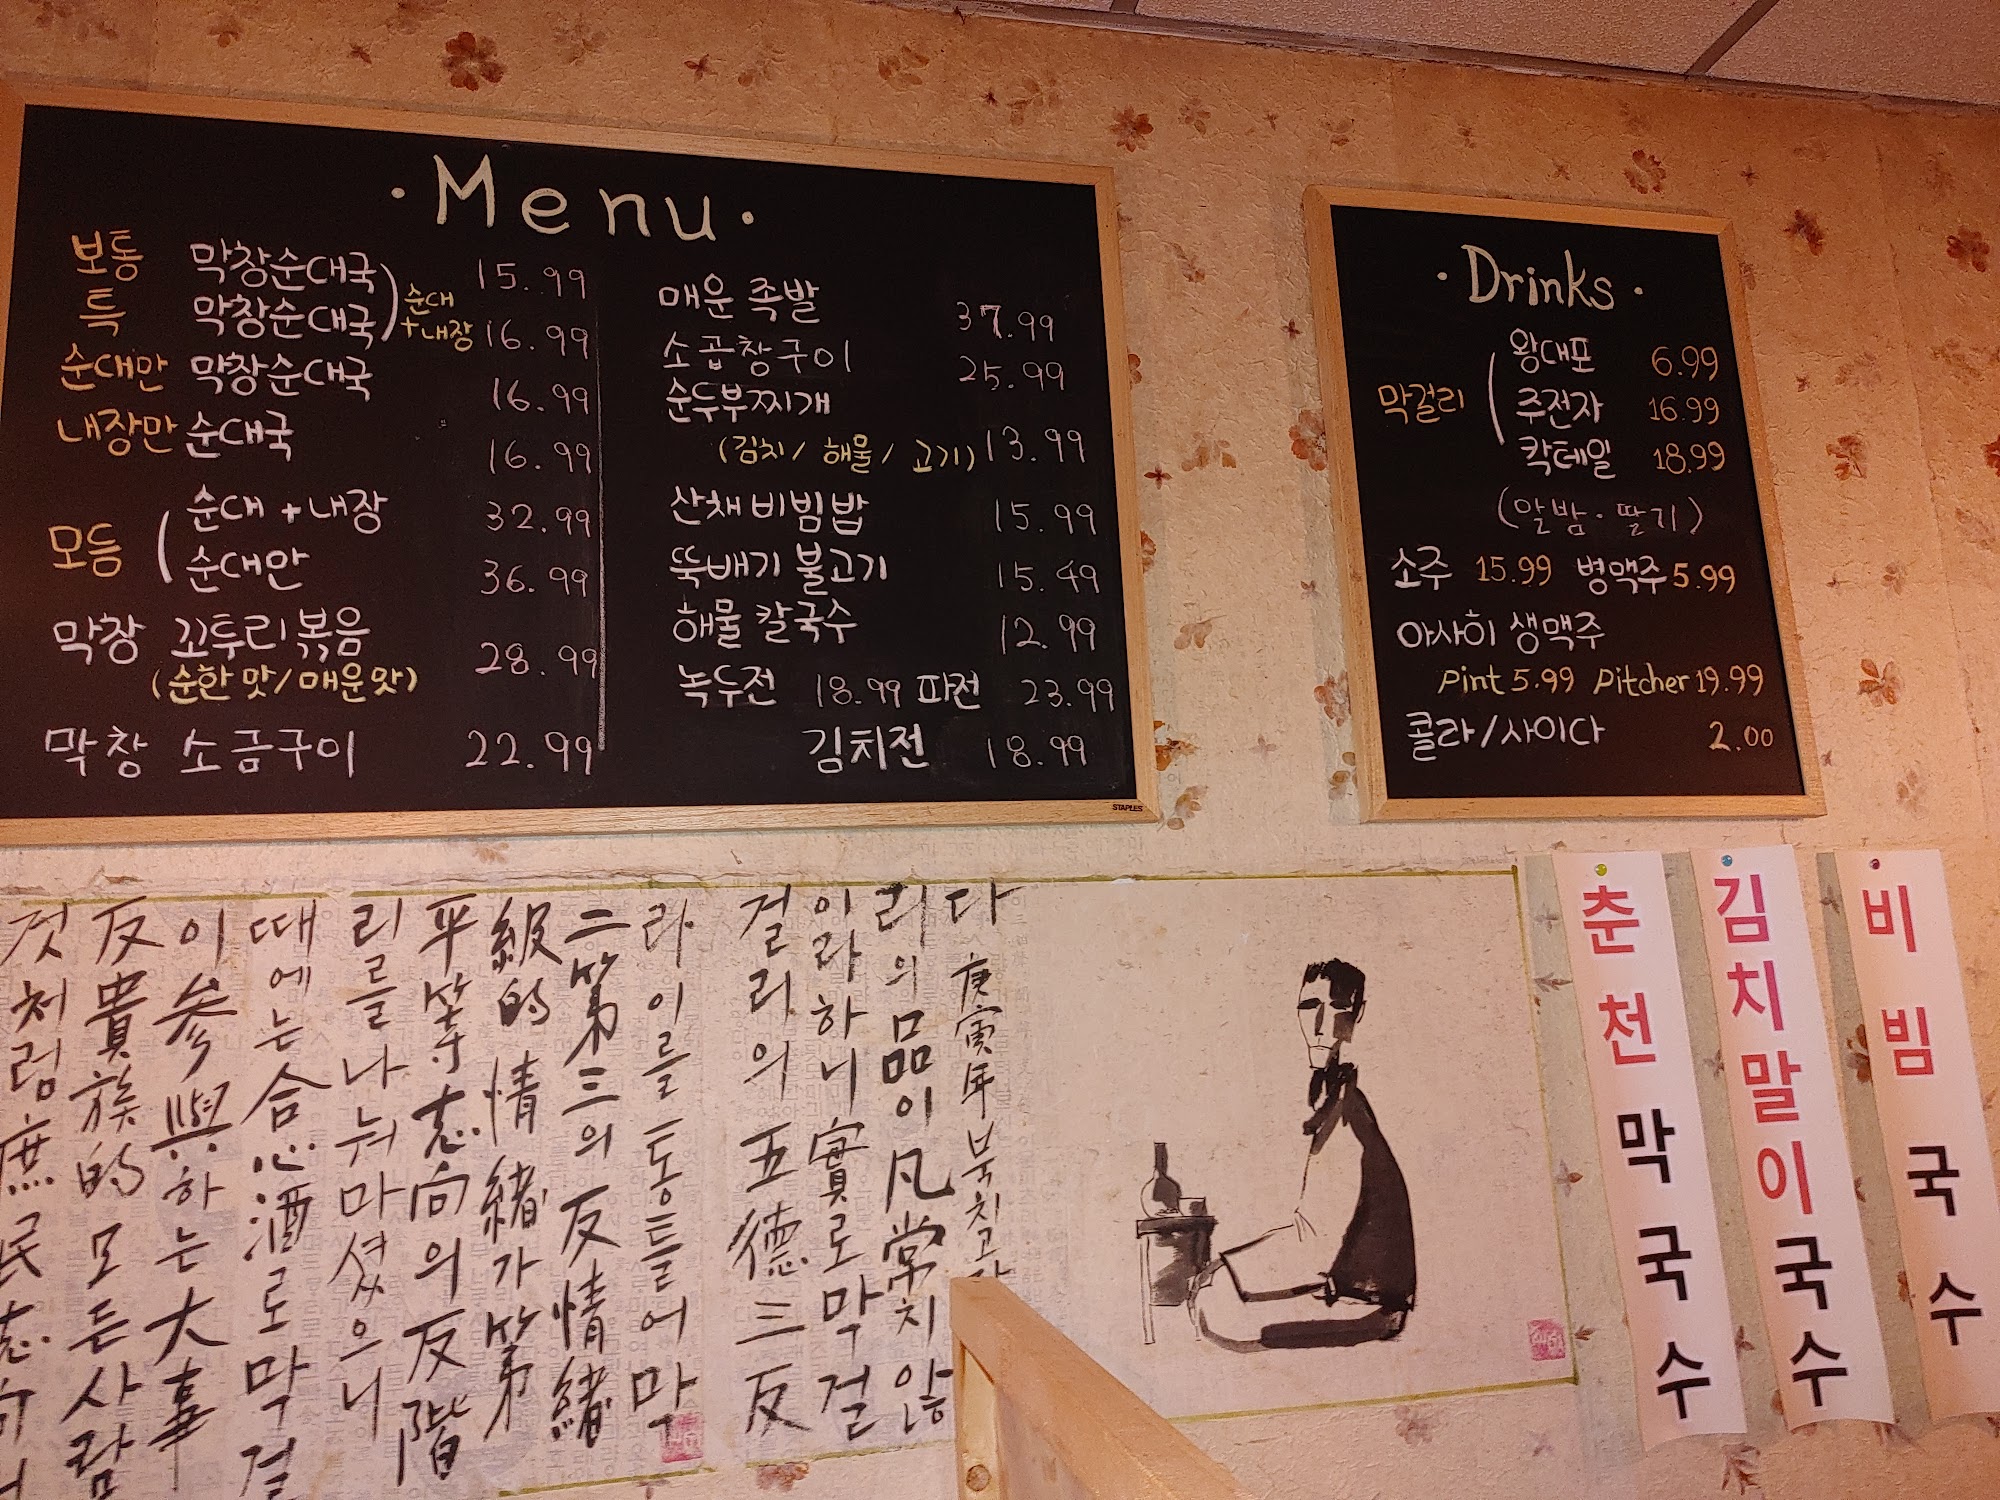 · Menu ·
보통 막창순대국 15.99
특 막창순대국 16.99
순대
+내장
순대만 막창순대국 16.99
내장만 순대국 16.99
모듬
순대+내장 32.99
순대만 36.99
막창 꼬투리볶음 28.99
(순한맛/매운맛)
막창 소금구이 22.99
매운 족발 37.99
소곱창구이 25.99
순두부찌개
(김치/해물/고기) 13.99
산채비빔밥 15.99
뚝배기 불고기 15.49
해물 칼국수 12.99
녹두전 18.99 파전 23.99
김치전 18.99
STAPLES
· Drinks ·
막걸리
왕대포 6.99
주전자 16.99
칵테일 18.99
(알밤·딸기)
소주 15.99 병맥주 5.99
아사히 생맥주
Pint 5.99 Pitcher 19.99
콜라/사이다 2.00
다 庚寅年 북치고
리의 品이 凡常치 않
이라하니 實로 막걸
걸리의 五德三反
라 이를 통틀어 막
二第三의 反情緖
級的 情緖가 第
平等志向의 反階
리를 나눠마셨으니
때에는 合心酒로 막걸
이 參與하는 大事
反貴族的 모든 사람
것처럼 庶民志
춘천막국수
김치말이국수
비빔국수